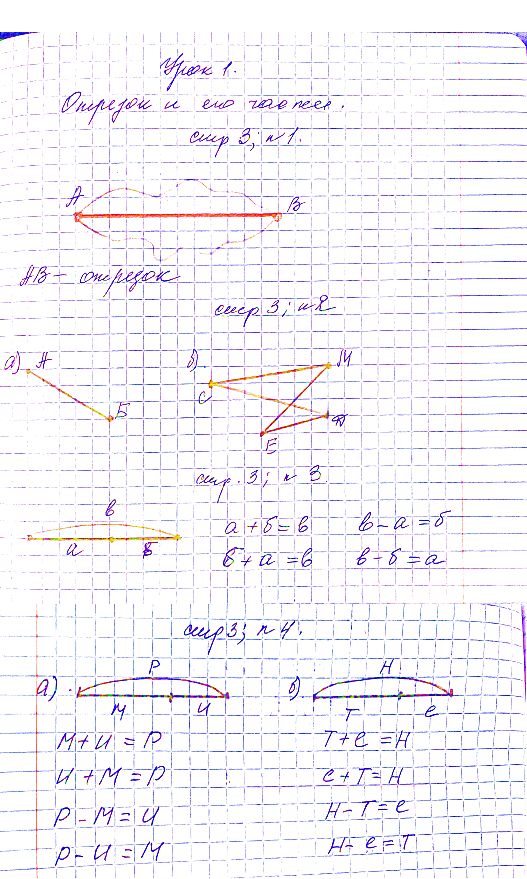 Урок 1.
Отрезок и его части.
стр 3; №1.
А В
АВ — отрезок
стр 3; №2
а) А Б
б) С М Д Е
стр. 3; №3.
в
а б
а + б = в в - а = б
б + а = в в - б = а
стр 3; №4.
а) Р б) Н
М И Т С
М + И = Р Т + С = Н
И + М = Р С + Т = Н
Р - М = И Н - Т = С
Р - И = М Н - С = Т